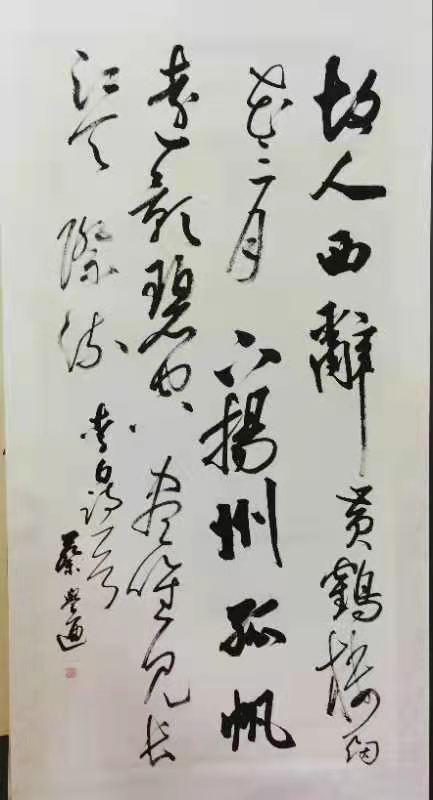 故人西辭黃鶴樓烟
花三月下揚州孤帆
遠影碧空盡唯見長
江天際流
李白詩一首
蔡